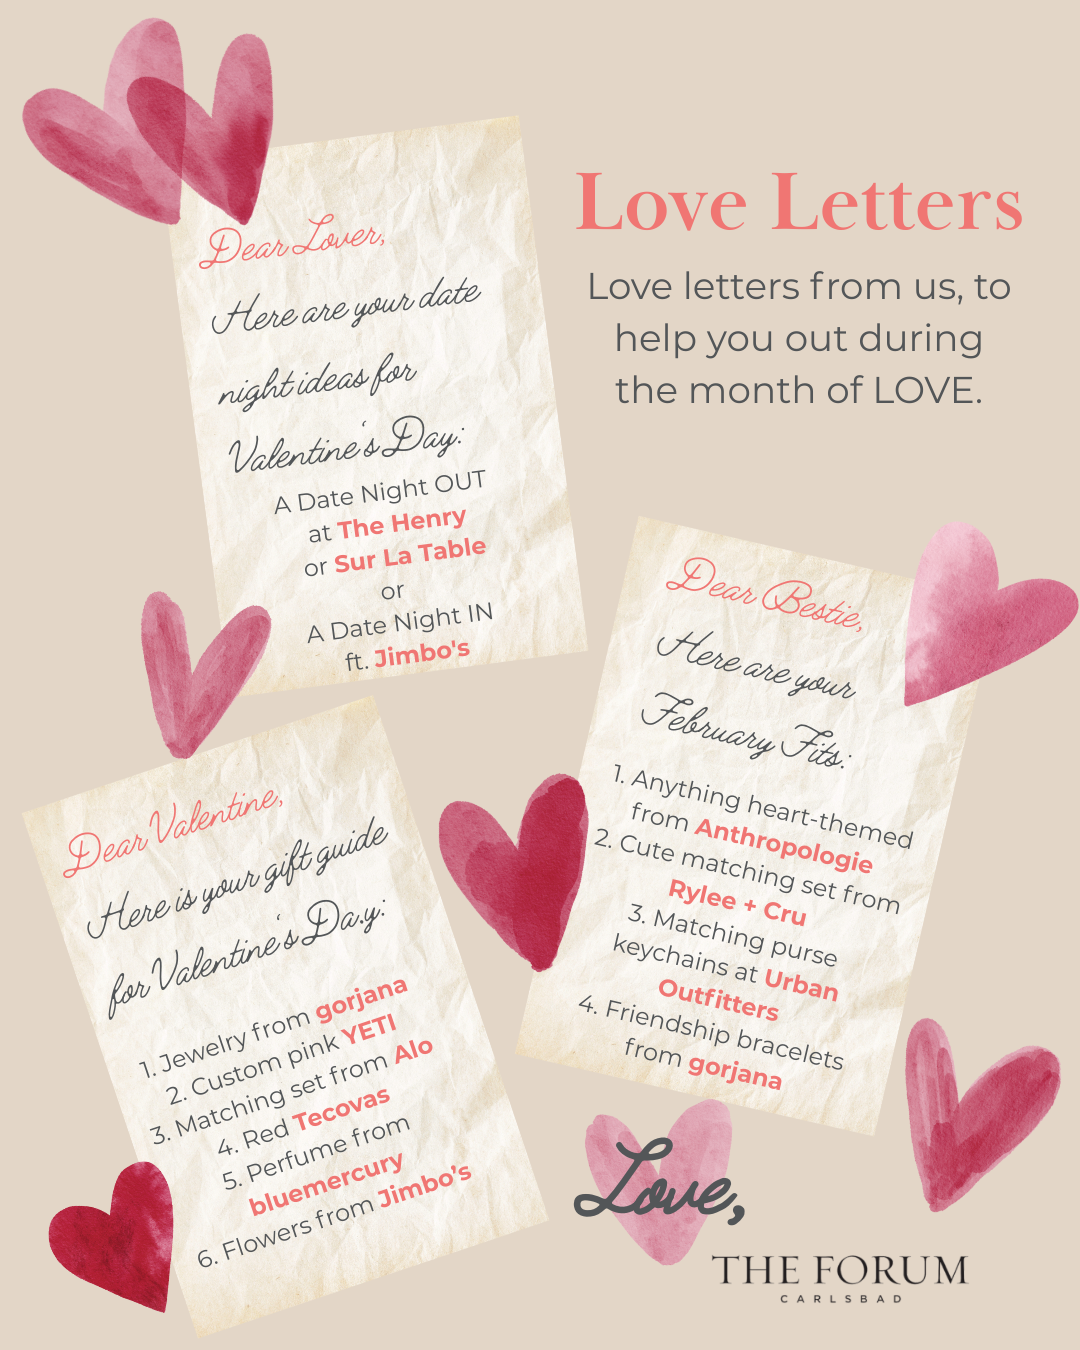 Love Letters
Love letters from us, to
help you out during
the month of LOVE.
Dear Lover,
Here are your date
night ideas for
Valentine's Day:
A Date Night OUT
at The Henry
or Sur La Table
or
A Date Night IN
ft. Jimbo's
Dear Bestie,
Here are your
February Fits:
1. Anything heart-themed
from Anthropologie
2. Cute matching set from
Rylee + Cru
3. Matching purse
keychains at Urban
Outfitters
4. Friendship bracelets
from gorjana
Dear Valentine,
Here is your gift guide
for Valentine's Da.y:
1. Jewelry from gorjana
2. Custom pink YETI
3. Matching set from Alo
4. Red Tecovas
5. Perfume from
bluemercury
6. Flowers from Jimbo's
Love,
THE FORUM
CARLSBAD